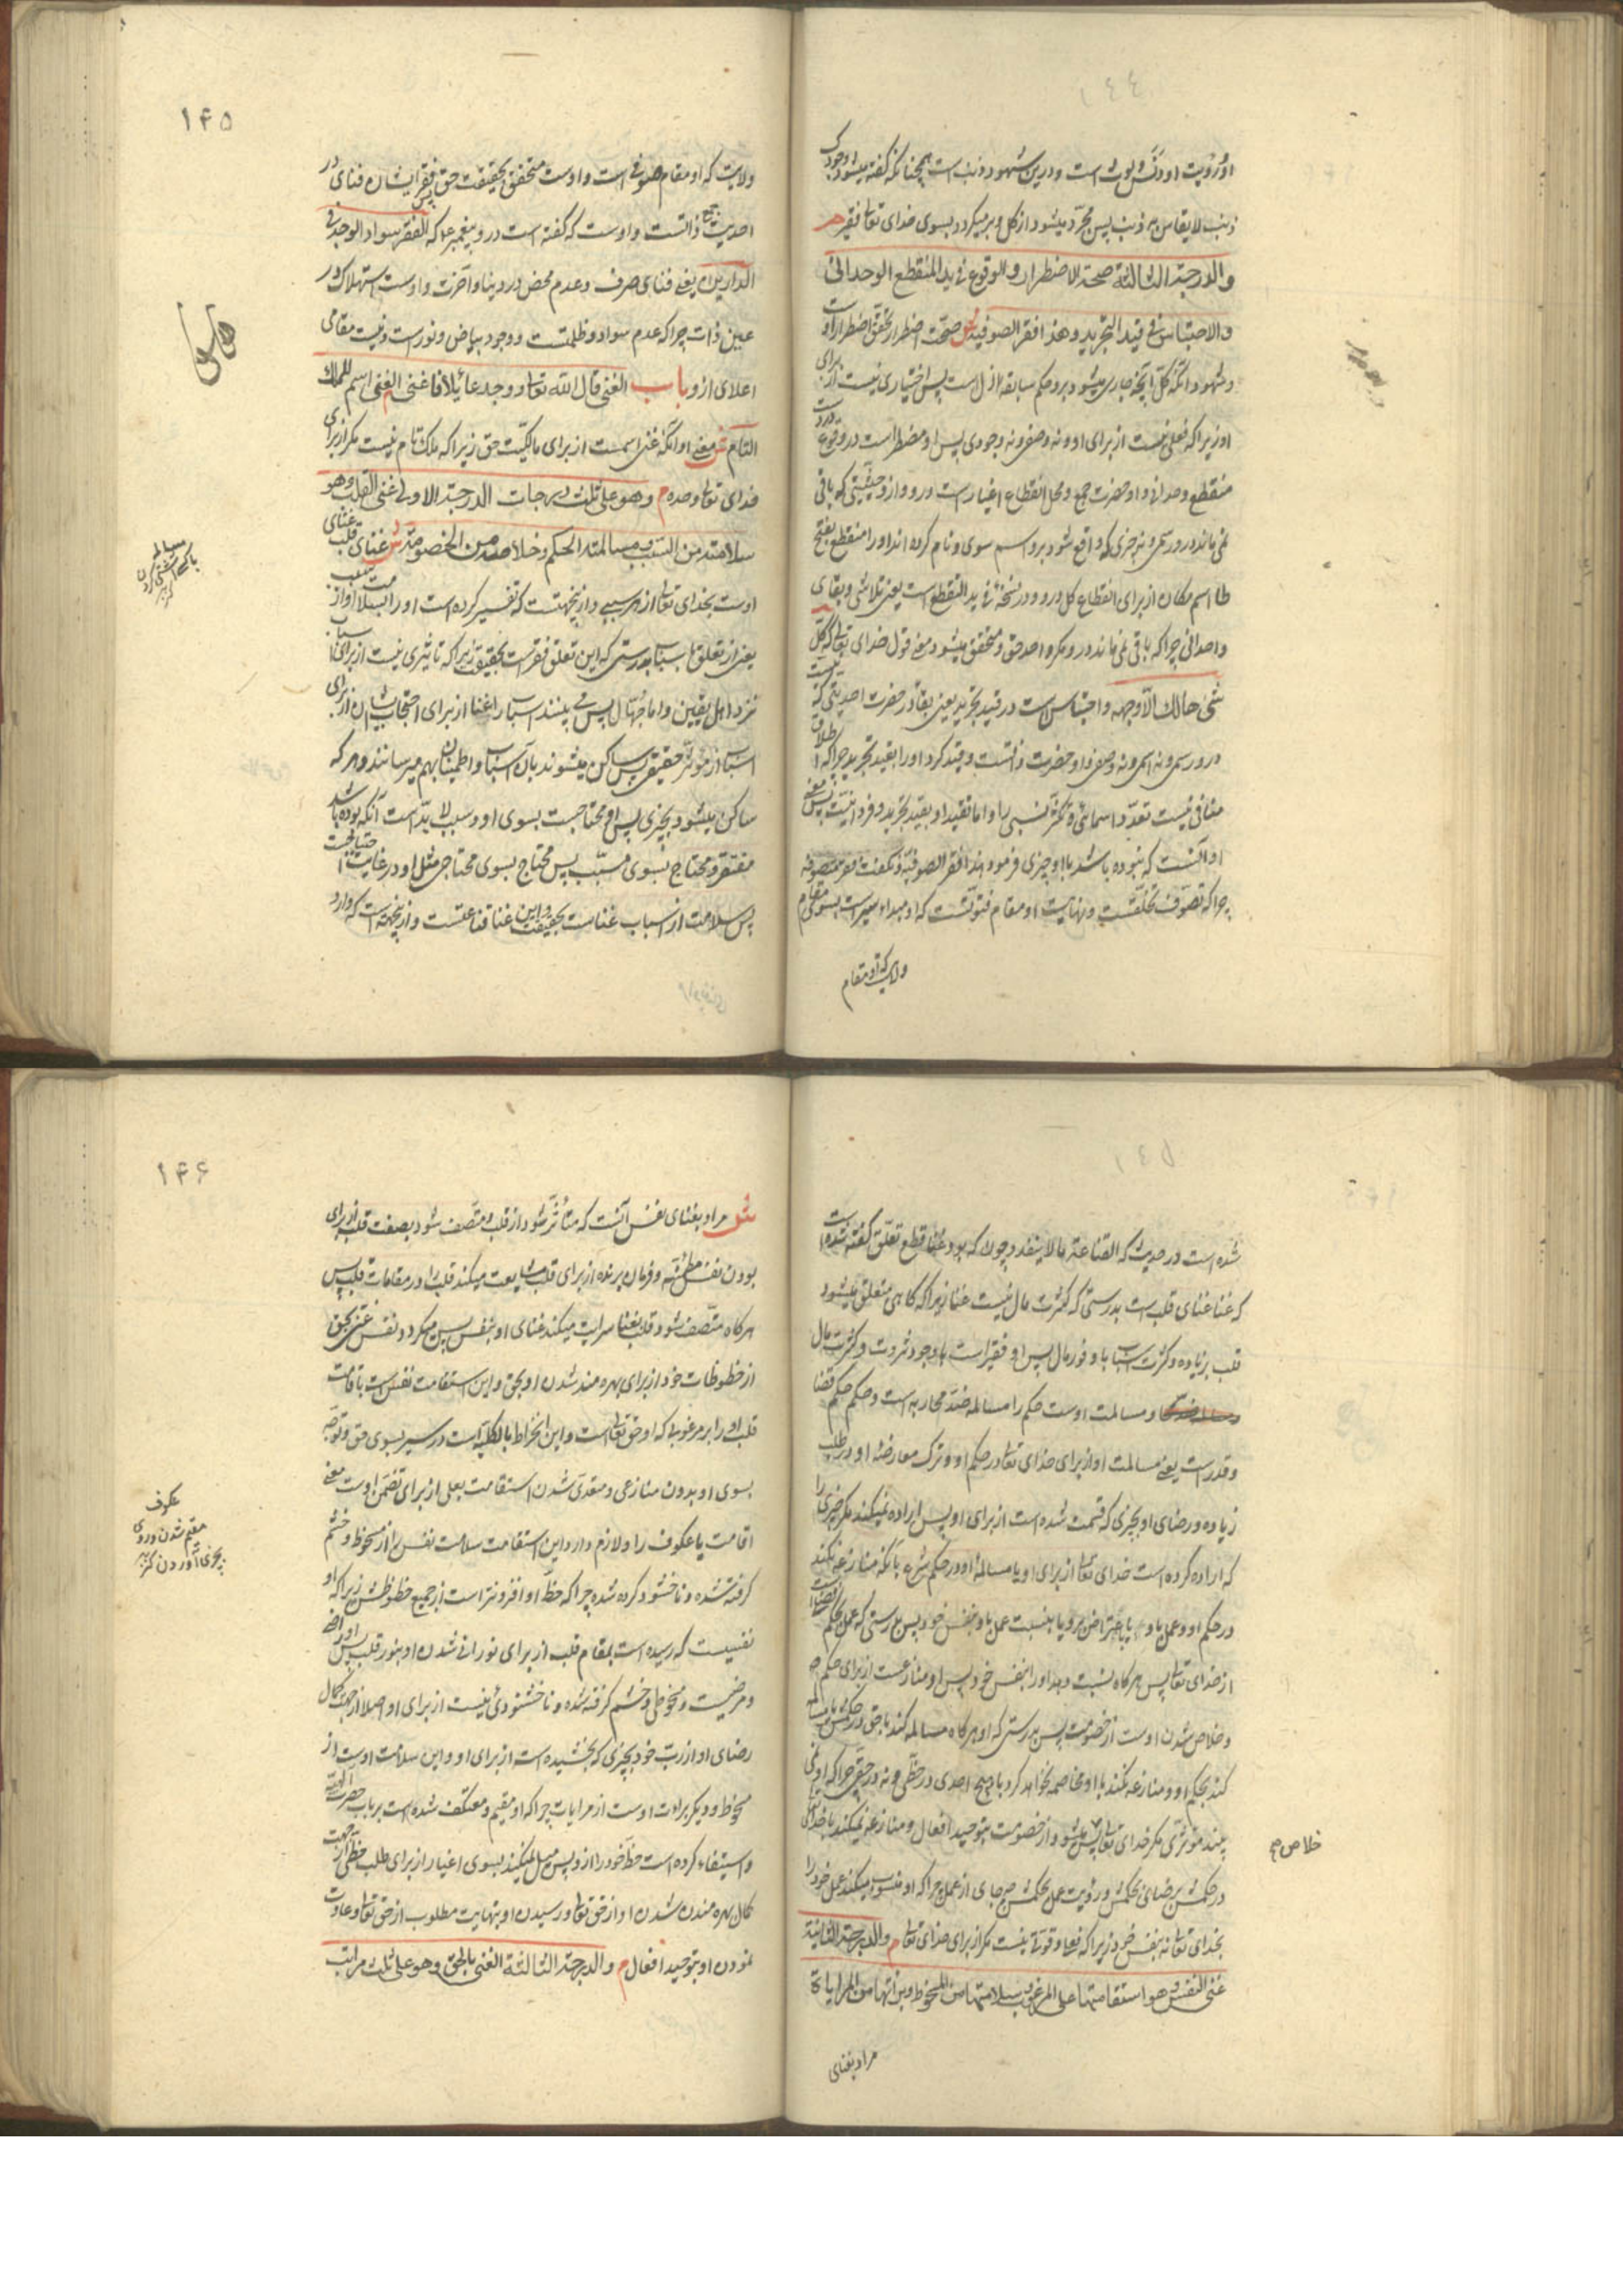 او رؤیت او دَنَس لوث است و درین شهود ذنب است همچنانکه گفته میشود وجودک
ذنب لا یقاس به ذنب پس مجرد میشود از کل و بر میگردد بسوی خدای تعالی فقیر م
والدرجة الثالثة صحة الاضطرار والوقوع فی ید المنقطع الوحدانی
والاحتباس فی قید التجرید وهذا فقر الصوفیه ش صحت اضطرار تحقق اضطرار اوست
و شهود آنکه کل آنچه جاری میشود برو حکم سابقه ازل است پس اختیاری نیست از برای
او زیرا که فعلی نیست از برای او و نه وصفی و نه وجودی پس او مضطر است در وقوع در ید
منقطع وحدانی و او حضرت جمع و محل انقطاع اغیار است درو و از و حیثیتی که باقی
نمی ماند درو رسمی و نه چیزی که واقع شود برو اسم سوی و نام کرده اند او را منقطع بفتح
طا اسم مکان از برای انقطاع کل درو و در نسخه فی ید التقطع است یعنی تلاشی و بقای
واحدانی چرا که باقی نمی ماند درو مکر واحد حق و متحقق میشود معنی قول خدای تعالی که کل
شئ هالک الا وجهه و احتباس است در قید تجرید یعنی بقا در حضرت احدیتی که نیست
درو رسمی و نه اسمی و نه وصفی و او حضرت ذاتست و قید کرد او را بقید تجرید چرا که اطلاق
منافی نیست تعدد اسمائی و تکثر نسبی را و اما تقید او بقید تجرید و فردانیت پس معنی
او آنست که نبوده باشد با او چیزی فرمود هذا فقر الصوفیة و نکفت فقر متصوفه
چرا که تصوف تخلقست و نهایت او مقام فتوتست که او مبداء سیر است بسوی مقام
ولایت که او مقام
۱۴۵
ولایت که او مقام صوفی است و اوست متحقق بحقیقت حق پس فقر ایشان فنای در
احدیت جمع ذاتست و اوست که گفته است درو پیغمبر ع که الفقر سواد الوجه فی
الدارین م یعنی فنای صرف و عدم محض در دنیا و آخرت و اوست استهلاک در
عین ذات چرا که عدم سواد و ظلمتست و وجود بیاض و نور است و نیست مقامی
اعلای از و باب الغنی قال الله تعالی ووجدک عائلا فاغنی الغنی اسم للملک
التام ش معنی او آنکه غنی اسمست از برای مالکیت حق زیرا که ملک تام نیست مکر از برای
خدای تعالی وحده م وهو علی ثلث درجات الدرجة الاولی غنی القلب وهو
سلامته من السبب ومسالمته الحکم وخلاصه من الخصومة ش غنای قلب غنای
اوست بخدای تعالی از هر سببی و ازینجهتست که تفسیر کرده است او را بسلامت او از سبب
یعنی از تعلق باسباب بدرستی که این تعلق فقر است بحقیقت زیرا که تاثیری نیست از برای اسباب
نزد اهل یقین و اما جهال پس می بینند اسباب را غنا از برای احتجاب ایشان از برای
اسباب از مؤثر حقیقی پس ساکن میشوند بآن اسباب و اطمینان بهم میرسانند و هر که
ساکن میشود بچیزی پس او محتاجست بسوی او و سبب لا بد است آنکه بوده باشد
مفتقر و محتاج بسوی مسبب پس محتاج بسوی محتاجی مثل او در غایت احتیاجست
پس سلامت از اسباب غناست بحقیقت و این غنا قناعتست و ازینجهتست که وارد
مسالمه
با کسی آشتی کردن
کنز
شده است در حدیث که القناعة مال لا ینفد و چون که بود غنا قطع تعلق گفته شده است
که غنا غنای قلب است بدرستی که کثرت مال نیست غنا زیرا که کاهی متعلق میشود
قلب بزیاده و کثرت اسباب با وفور مال پس او فقیر است با وجود ثروت و کثرت مال
و مسالمت اوست حکم را مسالمه ضد محاربه است و حکم حکم قضا
و قدر است یعنی مسالمت او از برای خدای تعالی در حکم او و ترک معارضه او در طلب
زیاده و رضای او بچیزی که قسمت شده است از برای او پس اراده نمیکند مکر چیزی را
که اراده کرده است خدای تعالی از برای او یا مسالمه او در حکم شرع بآنکه منازعه نکند
در حکم او و عمل باو یا باعتراض برو یا بنسبت عمل باو بنفس خود پس بدرستی که عمل بحکم قضا است
از خدای تعالی پس هر کاه نسبت دهد او را بنفس خود پس او منازعست از برای حکم م
و خلاص شدن اوست از خصومت پس بدرستی که او هر کاه مسالمه کند با حق در حکمش با مسالمه
کند بحکم او و منازعه نکند با او مخاصمه نخواهد کرد با هیچ احدی در حظی و نه در حقی چرا که او نمی
بیند مؤثری مکر خدای تعالی پس میشود از خصومت بتوحید افعال و منازعه نمیکند با خدای تعالی
در حکمش برضای بحکمش و رؤیت عمل بحکمش هر جای از عمل چرا که او منسوب میکند عمل خود را
بخدای تعالی نه بنفس خود زیرا که فعل و قوتی نیست مکر از برای خدای تعالی م والدرجة الثانیة
غنی النفس وهو استقامتها علی المرغوب وسلامتها من المسخوط وبراءتها من المرایاة
خلاص م
مراد بغنای
۱۴۶
ش مراد بغنای نفس آنست که متأثر شود از قلب و متصف شود بصفت قلب از برای
بودن نفس مطمئنه و فرمان برنده از برای قلب متابعت میکند قلب را در مقامات قلب پس
هر کاه متصف شود قلب بغنا سرایت میکند غنای او بنفس پس میکردد نفس غنی بحق
از حظوظات خود از برای بهره مند شدن او بحق و این استقامت نفس است باقامت
قلب او را بر مرغوبی که او حق تعالی است و این انخراط بالکلیه است در سیر بسوی حق و توجه
بسوی او بدون منازعی و متعدی شدن استقامت بعلی از برای تضمن اوست معنی
اقامت یا عکوف را و لازم دارد این استقامت سلامت نفس را از مسخوط و خشم
گرفته شده و ناخشنود کرده شده چرا که حظ او افزونتر است از جمیع حظوظش زیرا که او
نفسیست که رسیده است بمقام قلب از برای نورانی شدن او بنور قلب پس او راضیه
و مرضیست و مسخوطی و خشم گرفته شده و ناخشنودئی نیست از برای او اصلا از جهت کمال
رضای او از رب خود بچیزی که بخشیده است از برای او و این سلامت اوست از
مسخوط و دیکر براءت اوست از مرایات چرا که او مقیم و معتکف شده است بر باب حضرت الهیه
و استیفاء کرده است حظ خود را از و پس میل نمیکند بسوی اغیار از برای طلب حظی از جهت
کمال بهره مندن شدن او از حق تعالی و رسیدن او بنهایت مطلوب از حق تعالی و عادت
نمودن او بتوحید افعال م والدرجة الثالثة الغنی بالحق وهو علی ثلث مراتب
عکوف
مقیم شدن و روی
بچیزی آوردن کنز